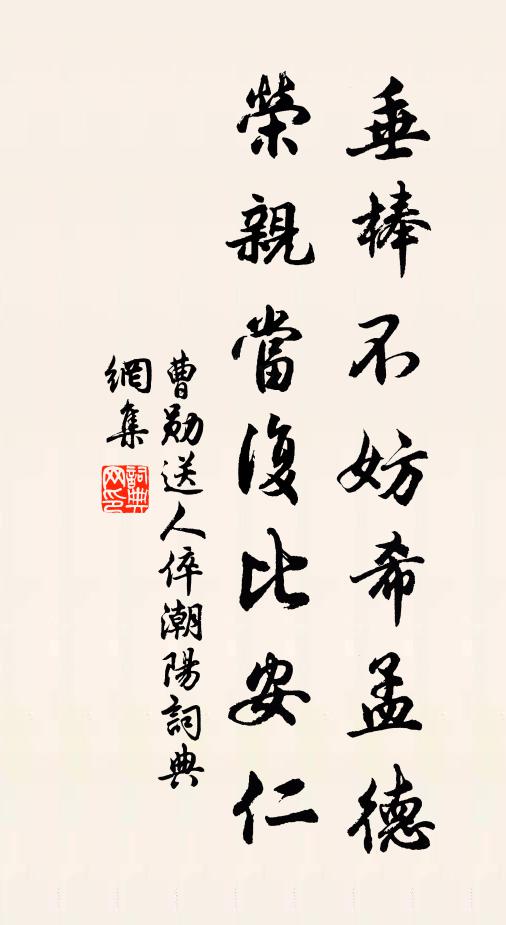 垂棒不妨希孟德
榮親當復比安仁
曹勛送人倅潮陽詞典
網集
詞典網印